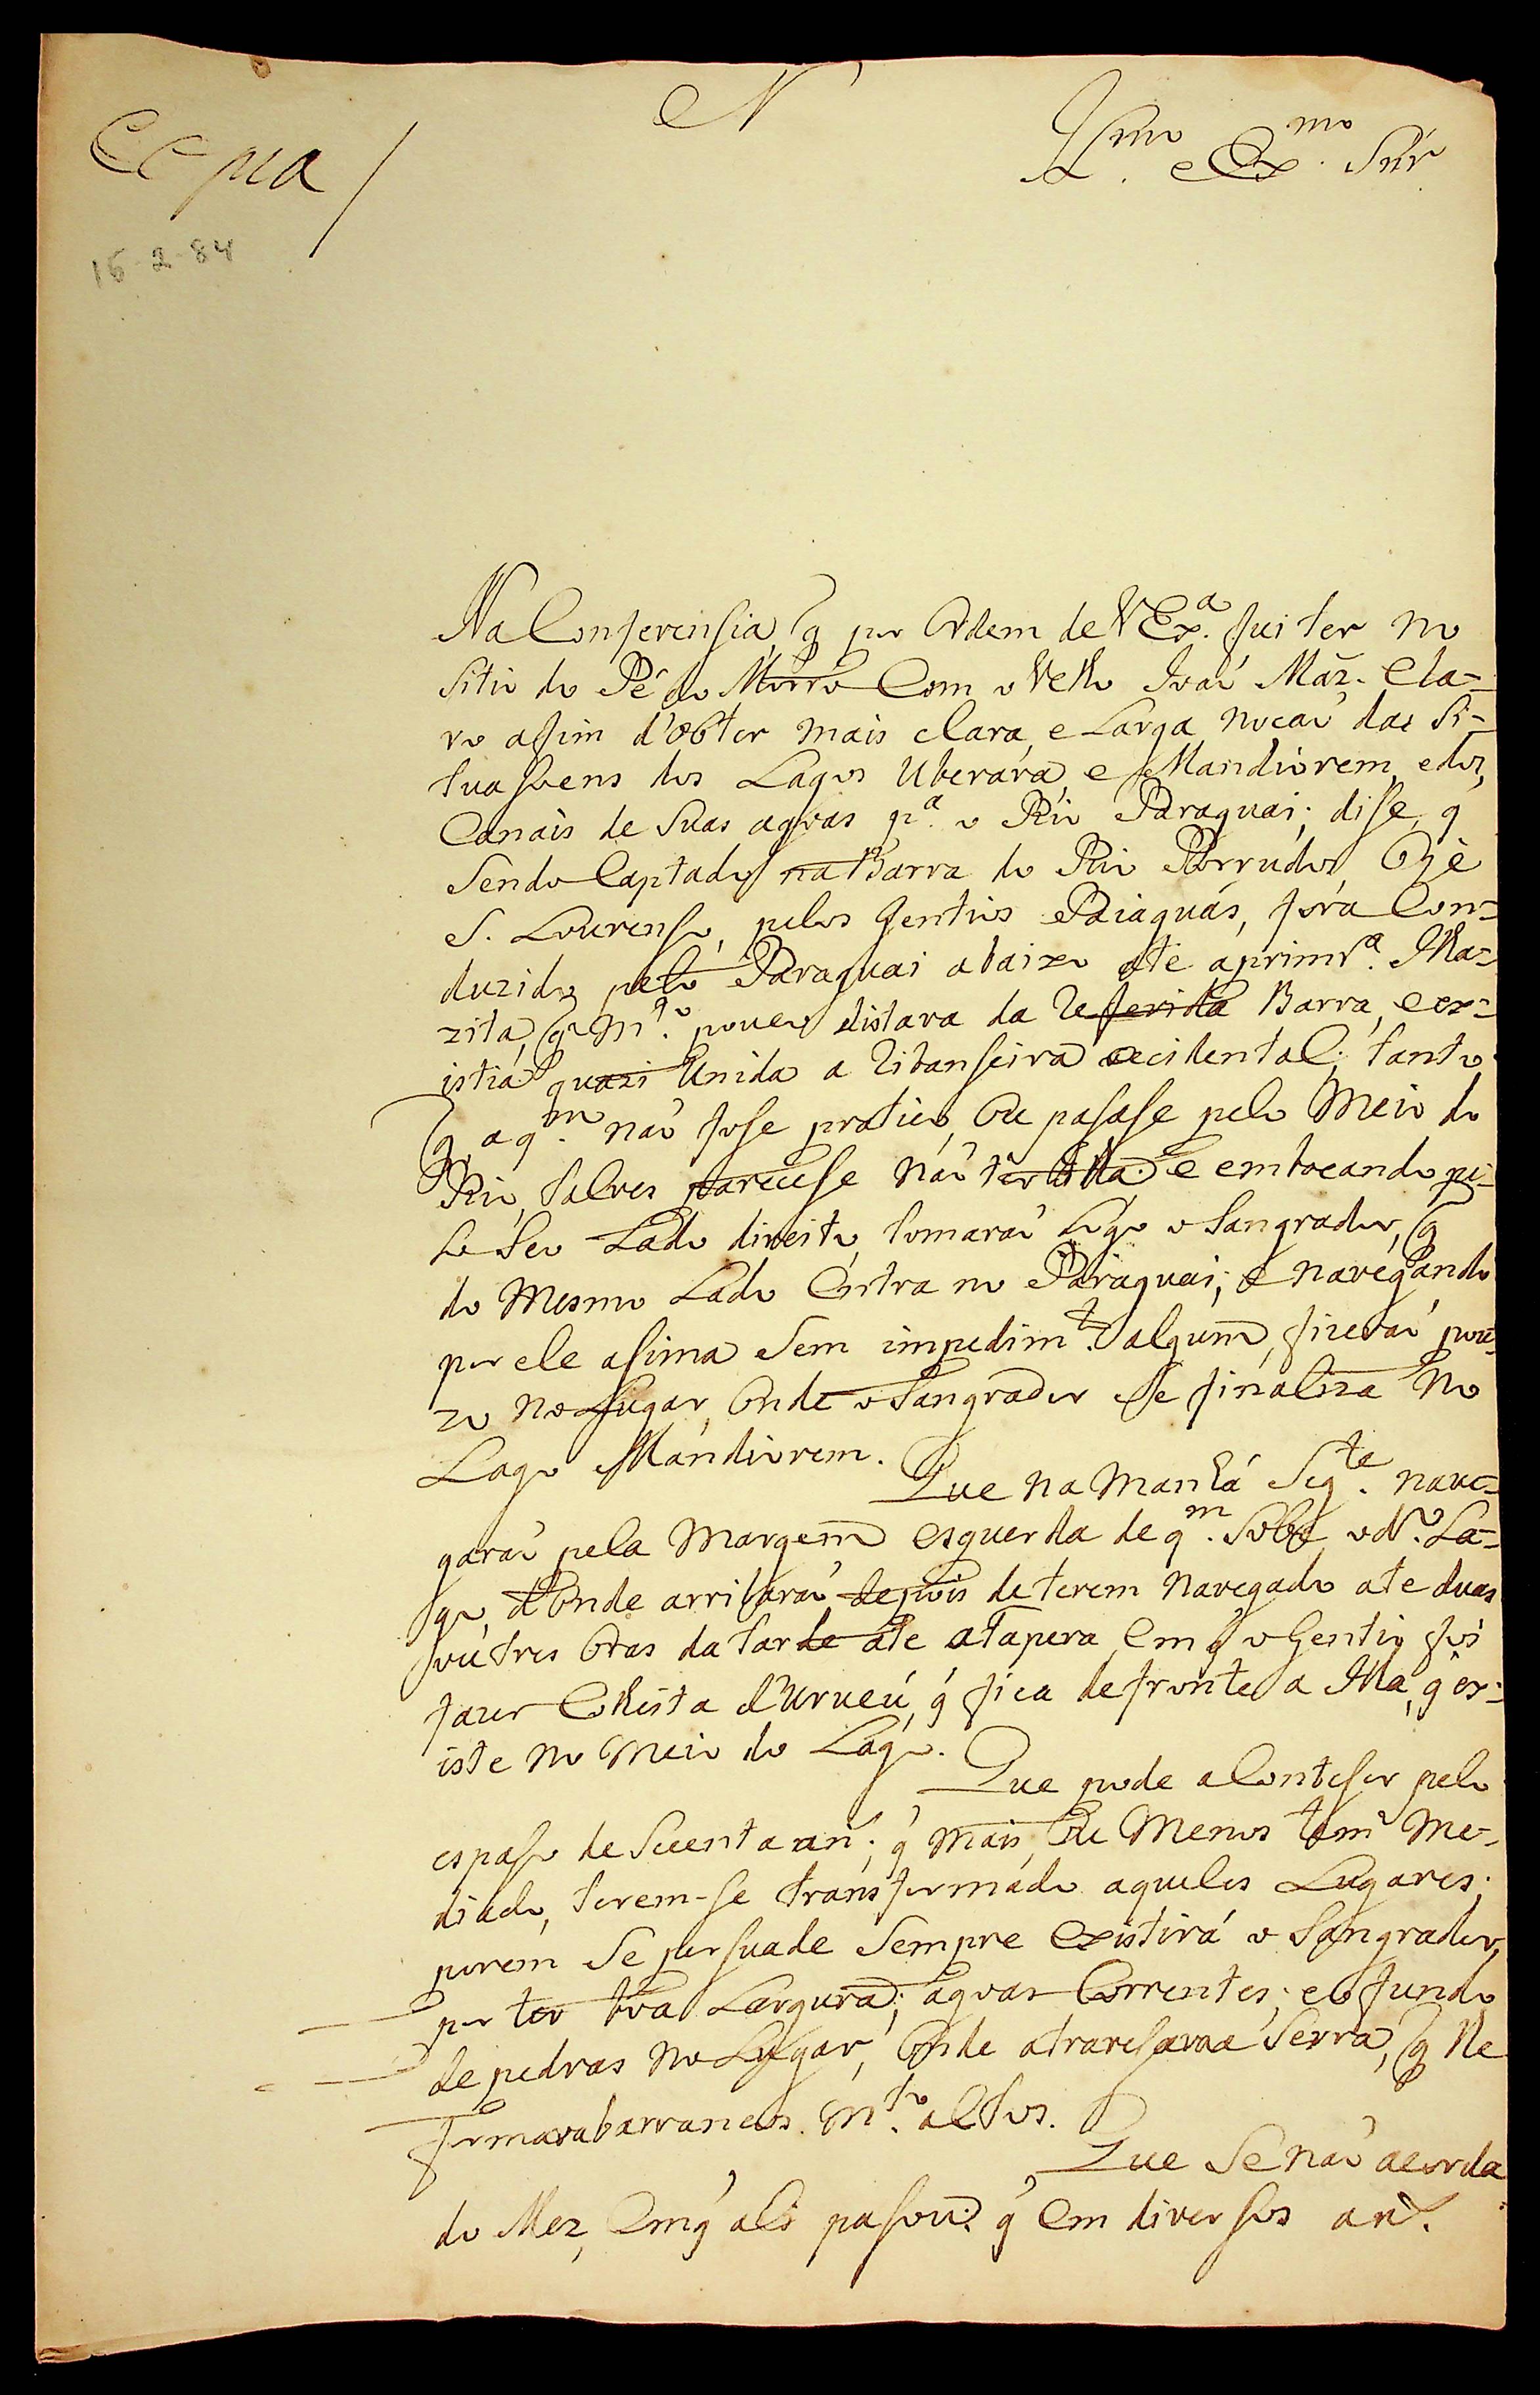 N
Copia /
Illmo. e Exmo. Snr
16-2-84
Na Conferensia, q̃ por Ordem de V Exa. fui ter no
sitio do Pé do Morro Com o Velho Joaõ Mãz. Cla=
ro afim d'obter mais clara, e Larga nocaõ das Si-
tuasoens dos Lagos Uberára, e Mandiorem, e dos
Canais de Suas agoas pa. o Rio Paraguai; disse, q̃
Sendo Captado na Barra do Rio Porrudos, Oje
S. Lourenso, pelos Gentios Paiaguás, fora Con=
duzido pelo Paraguai abaixo até a primra. Ilha=
zita, q̃ mto. pouco distava da referida Barra, e ex=
istia quazi Unida a ribanseira occidental; tanto
q̃ a qm. naõ fose pratico, Ou pasase pelo Meio do
Rio, talves parecese naõ ter Ilha: e embocando pe-
lo Seo Lado direito, tomaraõ Logo o Sangrador, q̃
do Mesmo Lado Entra no Paraguai; e navegando
por ele asima Sem impedimto. algum, fizeraõ pou-
zo no Lugar, Onde o Sangrador se finaliza no
Lago Mandiorem.
Que na Manhã Segte. nave=
garaõ pela Margem esquerda de qm. Sobe o do. La=
go, d'Onde arribaraõ depois de terem Navegado ate duas
ou tres Oras da tarde ate a tapera, Em q̃ o Gentio foi
fazer Colheita d'Urucú, q̃ fica defronte a Ilha, q̃ ex=
iste no Meio do Lago.
Que pode aConteser pelo
espaso de Secenta an.; q̃ mais, Ou Menos tem Me-
diado, terem-se transformado aqueles Lugares;
porem Se persuade Sempre Existirá o Sangrador,
por ter boa Largura; agoas Correntes; e o fundo
de pedras no Lugar, Onde atravesava a Serra, q̃ lhe
formava barrancos mto. altos.
Que Se naõ acorda
do Mez, Em q̃ ali pasou: q̃ Em diversos ans.